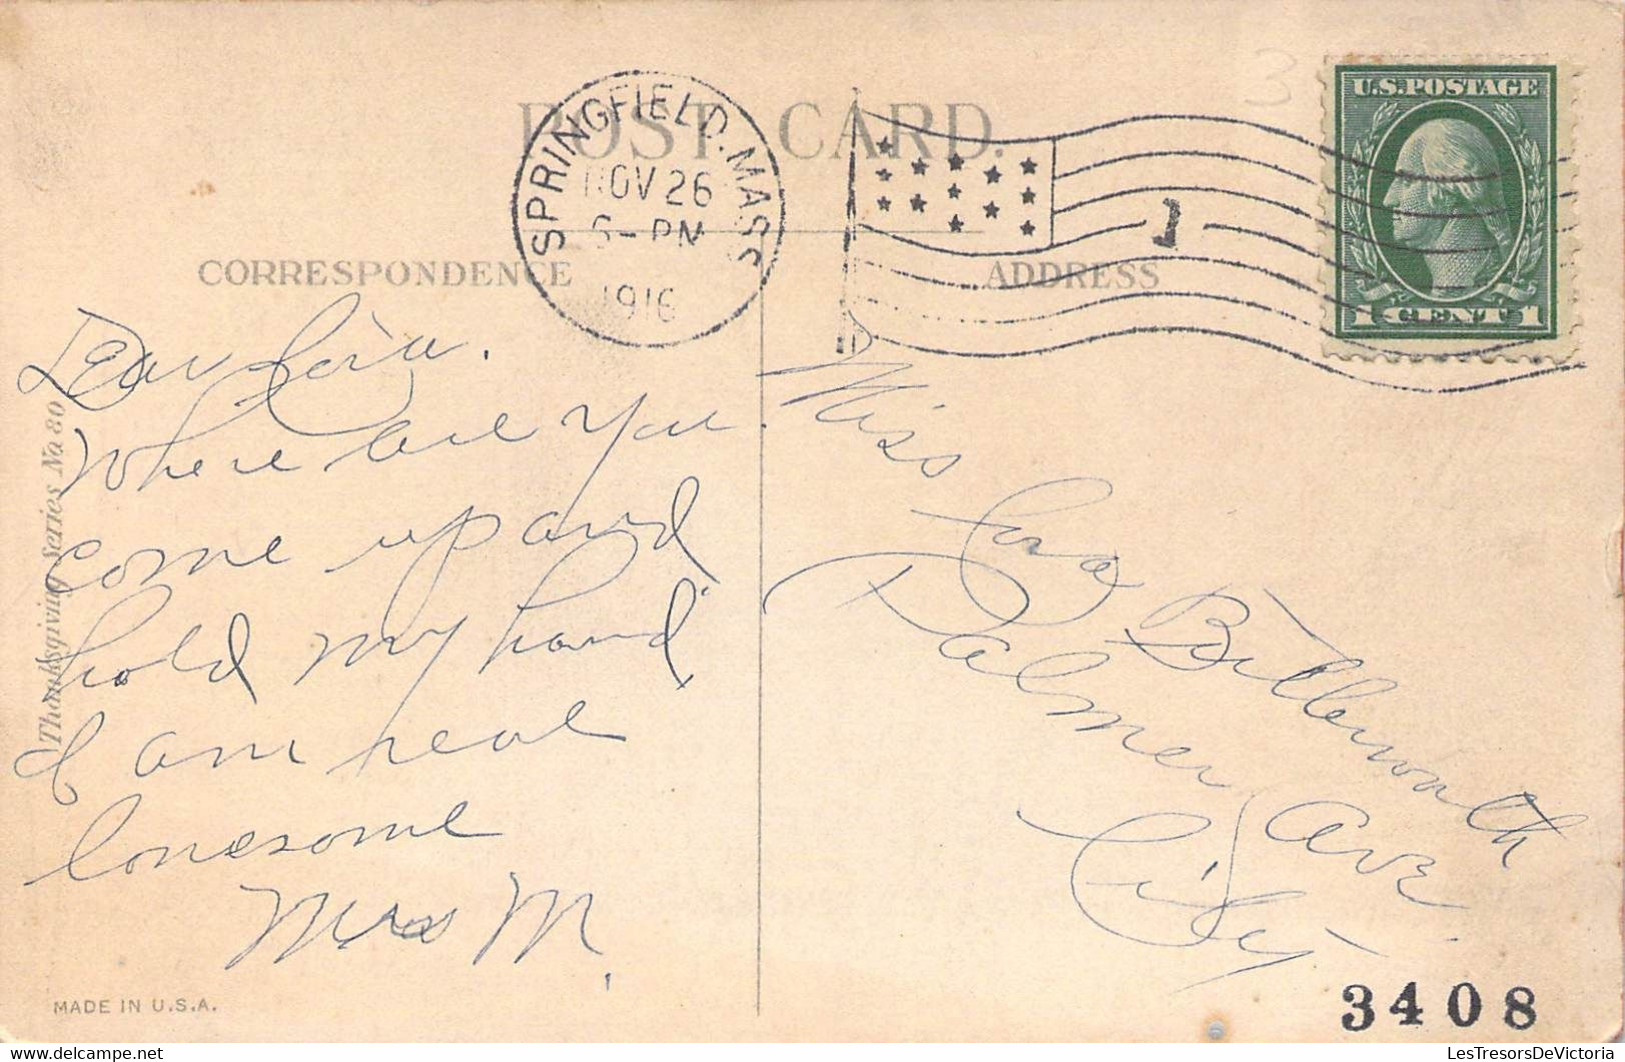 POST CARD.
SPRINGFIELD. MASS
NOV 26
6-PM
1916
1
U.S. POSTAGE
1 CENT 1
CORRESPONDENCE
ADDRESS
Dear Cora.
Where are you
come up and
hold my hand
I am real
lonesome
Mrs M.
Miss Cora Butterworth
Palmer Ave.
City
Thanksgiving Series No 80
MADE IN U.S.A.
3408
3
LesTresorsDeVictoria
delcampe.net